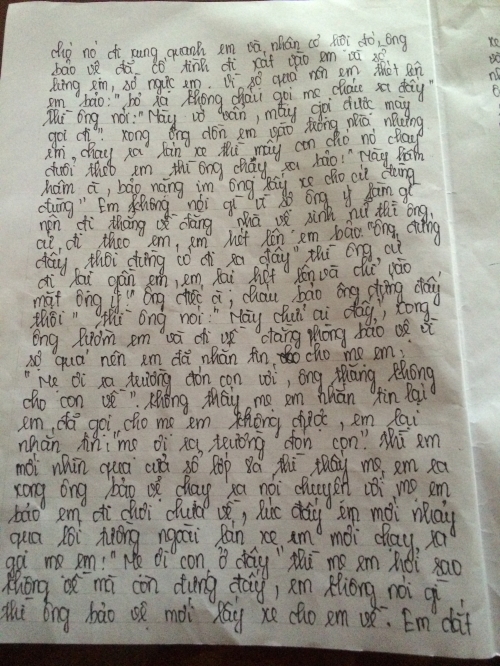 chó nó đi xung quanh em và nhân cơ hội đó, ông
bảo vệ đã cố tình đi sát vào em và sờ
lưng em, sờ ngực em. Vì sợ quá nên em thét lên
em bảo: " bỏ ra không cháu gọi mẹ cháu ra đây"
thì ông nói: " Mày vớ vẩn, mày gọi được mày
gọi đi". xong ông dồn em vào trong nhà nhưng
em, chạy ra lán xe thì mấy con chó nó chạy
đuổi theo em thì ông chạy ra bảo: " Mày hâm
hâm à, bảo nằng im ông lấy xe cho cứ đứng
đứng" Em không nói gì vì sợ ông ý làm gì
nên đi thẳng về đằng nhà vệ sinh nữ thì ông
cứ, đi theo em, em hét lên em bảo "ông đứng
đấy thôi đừng có đi ra đây" thì ông, cứ
đi lại gần em, em lại hét lên và chỉ vào
mặt ông ý " ông điếc à, cháu bảo ông đứng đấy
thôi" thì ông nói: " Mày chửi ai đấy", xong
ông lườm em và đi về đằng phòng bảo vệ vì
sợ quá nên em đã nhắn tin cho mẹ em:
" Mẹ ơi ra trường đón con với, ông thằng không
cho con về". không thấy mẹ em nhắn tin lại
em, đã gọi cho mẹ em không được, em lại
nhắn tin: "mẹ ơi ra, trường đón con". thì em
mới nhìn qua cửa sổ lớp 8a thì thấy mẹ, em ra
xong ông bảo vệ chạy ra nói chuyện với mẹ em
bảo em đi chơi chưa về, lúc đấy em mới nhảy
qua lối tường ngoài lán xe em mới chạy ra
gọi mẹ em: " Mẹ ơi con ở đây" thì mẹ em hỏi sao
không về mà còn đứng đấy, em không nói gì
thì ông bảo vệ mới lấy xe cho em về. Em dắt